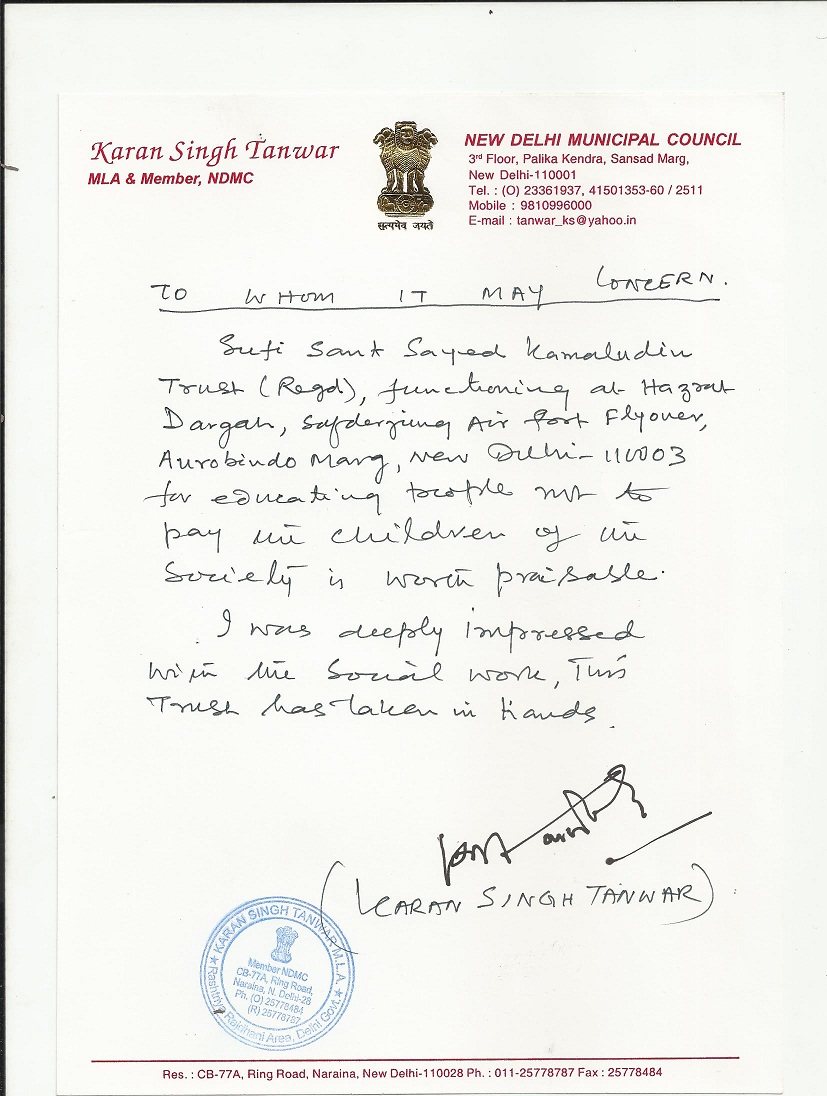 Karan Singh Tanwar
MLA & Member, NDMC
सत्यमेव जयते
NEW DELHI MUNICIPAL COUNCIL
3rd Floor, Palika Kendra, Sansad Marg,
New Delhi-110001
Tel. : (O) 23361937, 41501353-60 / 2511
Mobile : 9810996000
E-mail : tanwar_ks@yahoo.in
TO WHOM IT MAY CONCERN.
Sufi Sant Sayed Kamaludin
Trust (Regd), functioning at Hazrat
Dargah, Safderjung Air Port Flyover,
Aurobindo Marg, New Delhi-110003
for educating people not to
pay the children of the
Society is worth praisable.
I was deeply impressed
with the Social work, This
Trust has taken in hands.
(KARAN SINGH TANWAR)
★ KARAN SINGH TANWAR M.L.A. ★
Member NDMC
CB-77A, Ring Road,
Naraina, N. Delhi-28
Ph. (O) 25778484
(R) 25778787
Area, Delhi Govt.
Res. : CB-77A, Ring Road, Naraina, New Delhi-110028 Ph. : 011-25778787 Fax : 25778484